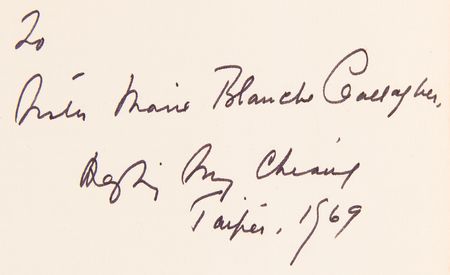 To
Sister Marie Blanche Gallagher,
Chiang
Taipei, 1969